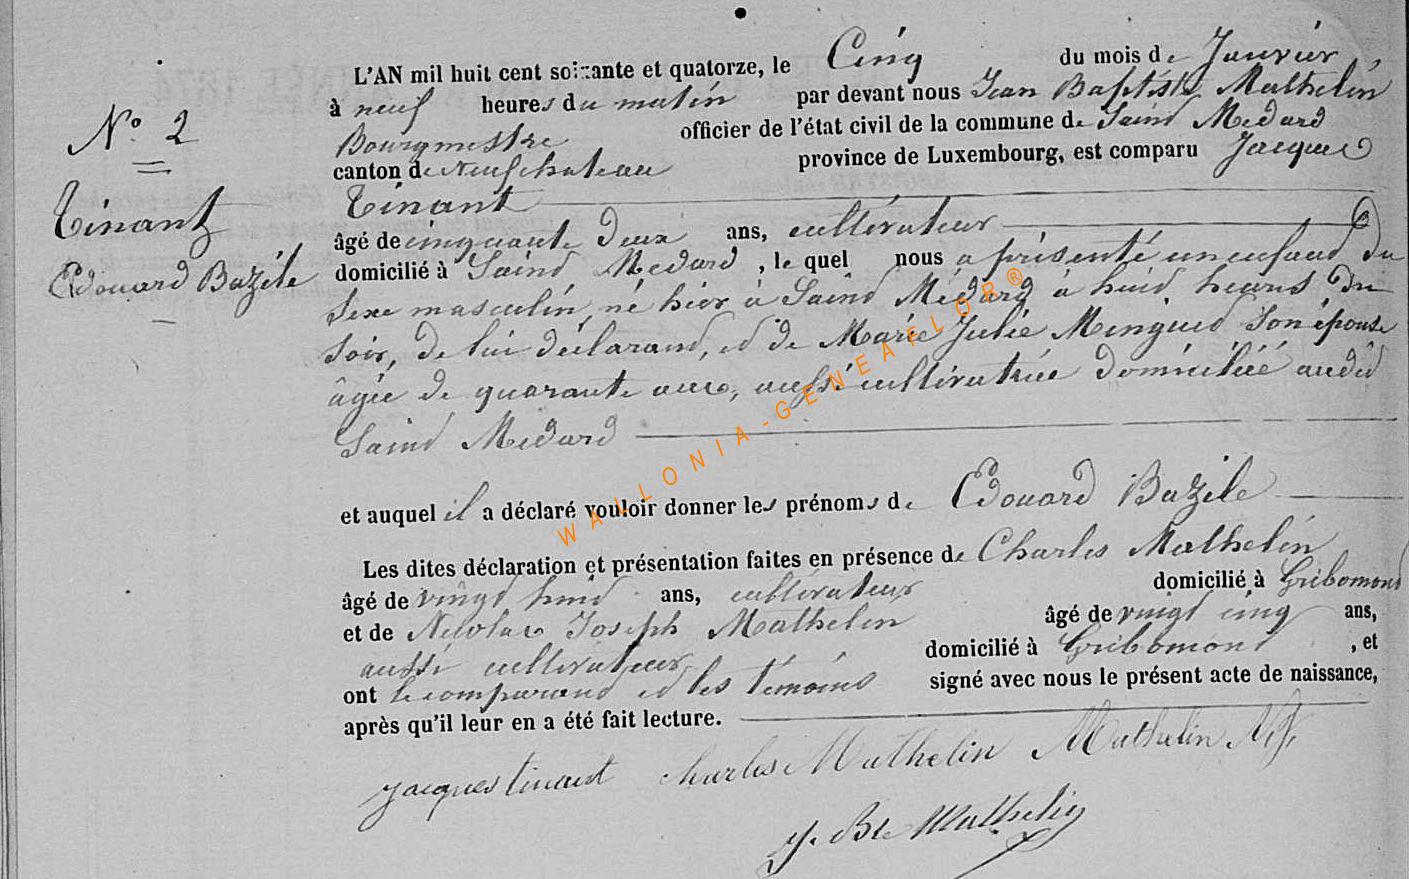 N° 2
Tinant
Edouard Bazile
L'AN mil huit cent soixante et quatorze, le Cinq du mois de Janvier
à neuf heures du matin par devant nous Jean Baptiste Mathelin
Bourgmestre officier de l'état civil de la commune de Saint Médard
canton de Neufchateau province de Luxembourg, est comparu Jacques
Tinant
âgé de cinquante deux ans, cultivateur
domicilié à Saint Medard, le quel nous a présenté un enfant du
sexe masculin, né hier à Saint Médard à huit heures du
soir, de lui déclarant, et de Marie Julie Minguet son épouse
âgée de quarante ans, aussi cultivatrice domiciliée audit
Saint Medard
et auquel il a déclaré vouloir donner les prénoms de Edouard Bazile
Les dites déclaration et présentation faites en présence de Charles Mathelin
âgé de vingt huit ans, cultivateur domicilié à Gribomont
et de Nicolas Joseph Mathelin âgé de vingt cinq ans,
aussi cultivateur domicilié à Gribomont, et
ont le comparant et les témoins signé avec nous le présent acte de naissance,
après qu'il leur en a été fait lecture.
Jacques tinant Charles Mathelin Mathelin NJ
J. Bte Mathelin
WALLONIA-GENEAFLOR®